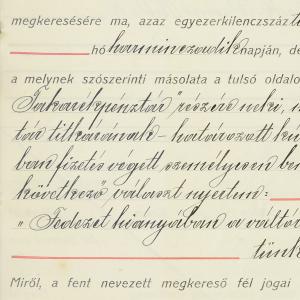 megkeresésére ma, azaz egyezerkilencszáz
hó harminczadik napján, de
a melynek szószerinti másolata a tulsó oldalo
Takarékpénztár" részére neki,
tár titkárának - határozott ki
ban fizetés végett személyesen be
következő választ nyertem:
„Fedezet hiányában a váltó
tünk
Miről, a fent nevezett megkereső fél jogai